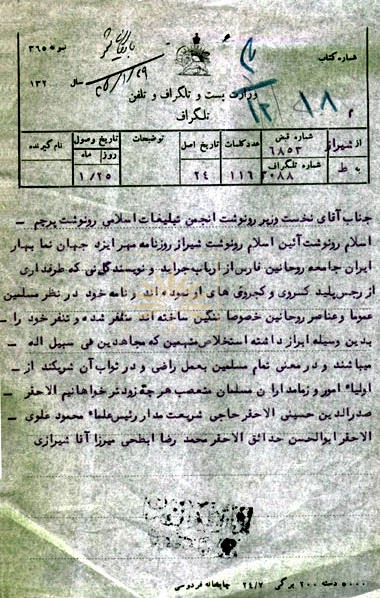 نمونه ۳۶۵
شماره کتاب
سال ۱۳۲
۲۵/۱/۲۹
وزارت پست و تلگراف و تلفن
تلگراف
۱۸
۱۲
از شیراز
شماره قبض ۶۸۵۳
عدد کلمات
تاریخ اصل
توضیحات
تاریخ وصول
روز ماه
نام گیرنده
به ط
شماره تلگراف ۳۰۸۸
۱۱۶
۲۴
۱/۲۵
جناب آقای نخست وزیر رونوشت انجمن تبلیغات اسلامی رونوشت پرچم –
اسلام رونوشت آئین اسلام رونوشت شیراز روزنامه مهر ایزد جهان نما بهار
ایران جامعه روحانین فارس از ارباب جراید و نویسندگانی که طرفداری
از رجس پلید کسروی و کجروی های او نموده اند و نامه خود در نظر مسلمین
عموما و عناصر روحانین خصوصا ننگین ساخته اند متنفر شده و تنفر خود را –
بدین وسیله ابراز داشته استخلاص متهمین که مجاهدین فی سبیل اله
میباشند و در معنی تمام مسلمین بعمل راضی و در ثواب آن شریکند از
اولیاء امور و زمامداران مسلمان متعصب هرچه زودتر خواهانیم الاحقر
صدرالدین حسینی الاحقر حاجی شریعت مدار رئیس علماء محمود علوی
الاحقر ابوالحسن حدائق الاحقر محمد رضا ابطحی میرزا آقا شیرازی
۵۰۰۰ دسته ۲۰۰ برگی ۲۴/۷ چاپخانه فردوسی